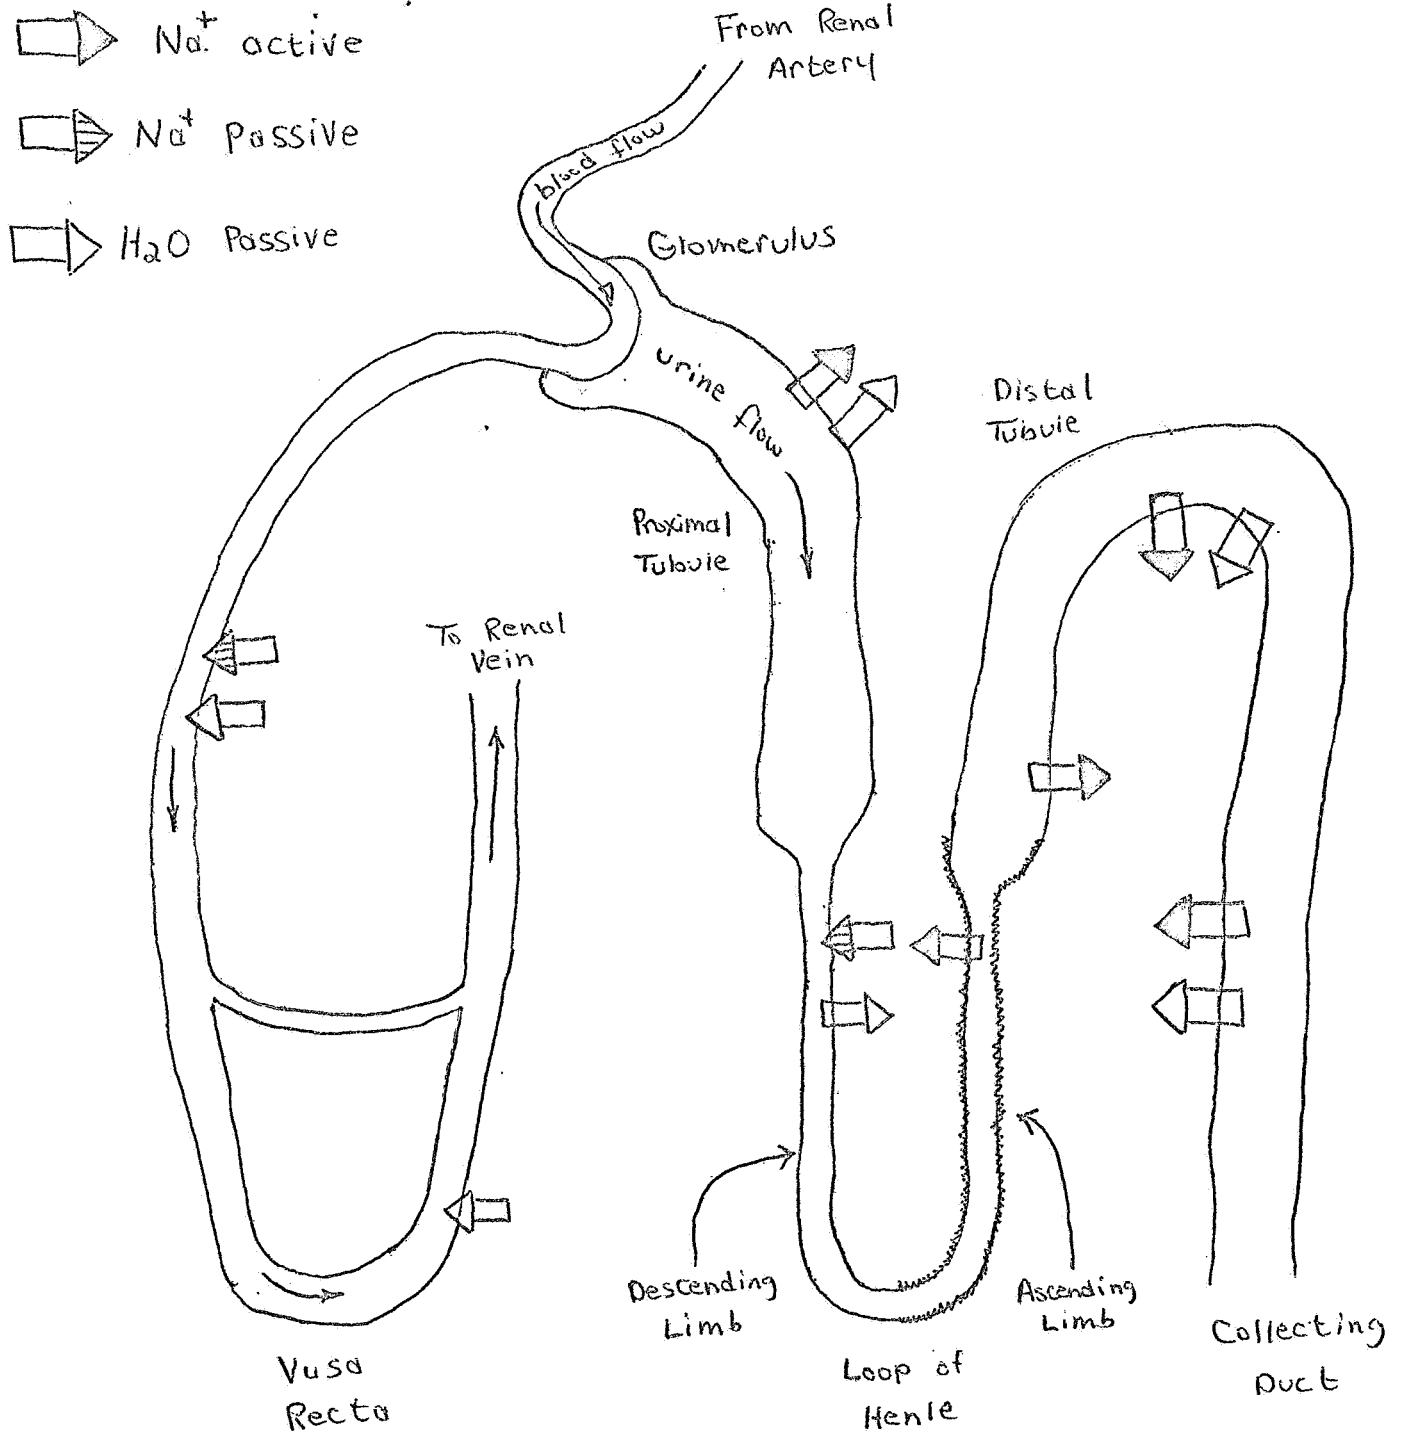 Na+ active
Na+ Passive
H2O Passive
From Renal
Artery
blood flow
Glomerulus
urine flow
Distal
Tubule
Proximal
Tubule
To Renal
Vein
Descending
Limb
Ascending
Limb
Collecting
Duct
Vusa
Recta
Loop of
Henle